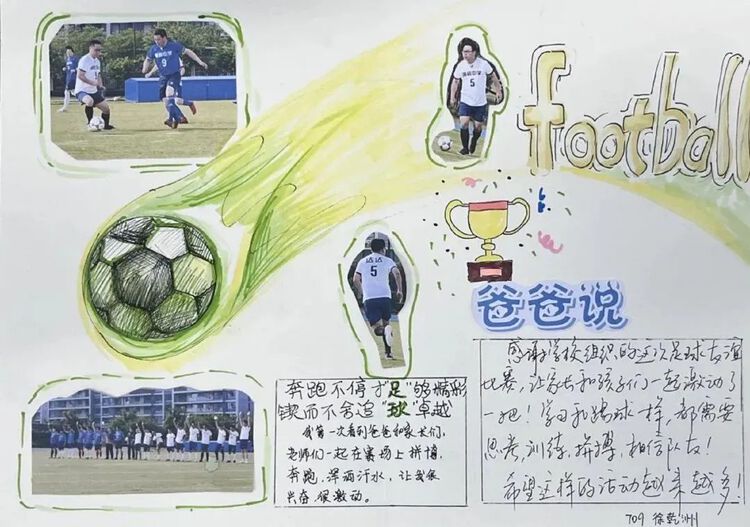 football
9
5
5
爸爸说
奔跑不停才"足"够精彩
锲而不舍追"球"卓越
我第一次看到爸爸和家长们、
老师们一起在赛场上拼搏、
奔跑、挥洒汗水，让我很
兴奋、很激动。
感谢学校组织的这次足球友谊
比赛，让家长和孩子们一起激动了
一把！学习和踢球一样，都需要
思考，训练，拼搏，相信队友！
希望这样的活动越来越多！
709 徐 洲